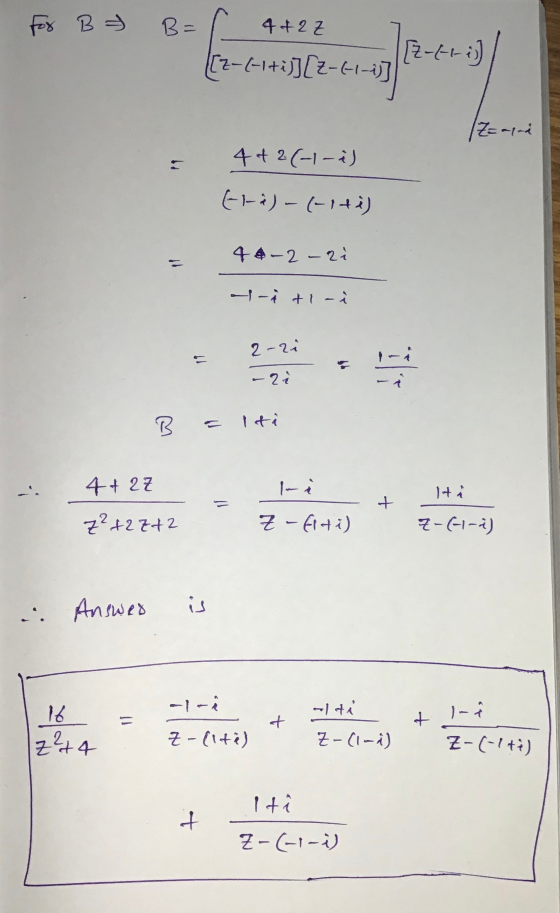 For B ⇒ B = [ (4+2z) / ([z-(-1+i)][z-(-1-i)]) ] [z-(-1-i)] | z=-1-i
= (4+2(-1-i)) / ((-1-i)-(-1+i))
= (4-2-2i) / (-1-i+1-i)
= (2-2i) / (-2i) = (1-i) / (-i)
B = 1+i
∴ (4+2z) / (z²+2z+2) = (1-i) / (z-(-1+i)) + (1+i) / (z-(-1-i))
∴ Answer is
16 / (z²+4) = (-1-i) / (z-(1+i)) + (-1+i) / (z-(1-i)) + (1-i) / (z-(-1+i))
+ (1+i) / (z-(-1-i))